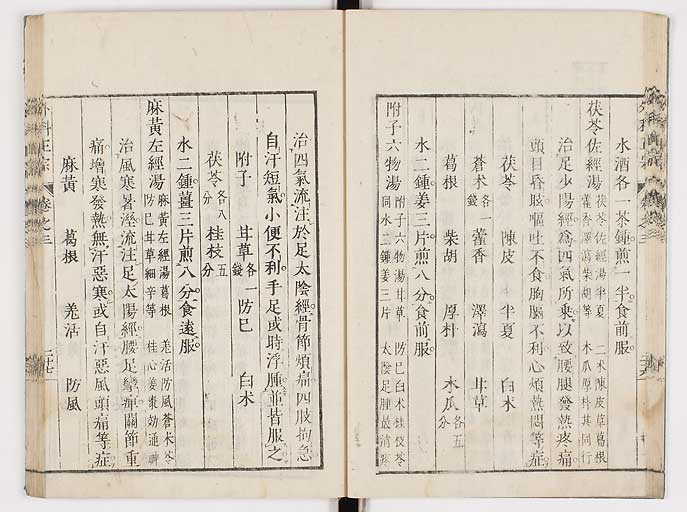 水酒各一茶鍾煎一半食前服
茯苓佐經湯
茯苓佐經湯半夏 二朮陳皮草葛根
藿香澤瀉柴胡等 木瓜厚朴共同行
治足少陽經為四氣所乘以致腰腿發熱疼痛
頭目昏眩嘔吐不食胸膈不利心煩熱悶等症
茯苓 陳皮 半夏 白朮
蒼朮各一錢 藿香 澤瀉 甘草
葛根 柴胡 厚朴 木瓜各五分
水二鍾姜三片煎八分食前服
附子六物湯
附子六物湯甘草 防巳白朮桂枝苓
同水二鍾姜三片 太陰足腫最消疼
治四氣流注於足太陰經骨節煩痛四肢拘急
自汗短氣小便不利手足或時浮腫並皆服之
附子 甘草各一錢 防巳 白朮
茯苓各八分 桂枝五分
水二鍾薑三片煎八分食遠服
麻黃左經湯
麻黃左經湯葛根 羌活防風蒼朮苓
防巳甘草細辛等 桂心姜棗効通
治風寒暑溼流注足太陽經腰足攣痺關節重
痛增寒發熱無汗惡寒或自汗惡風頭痛等症
麻黃 葛根 羌活 防風
外科正宗 卷之三